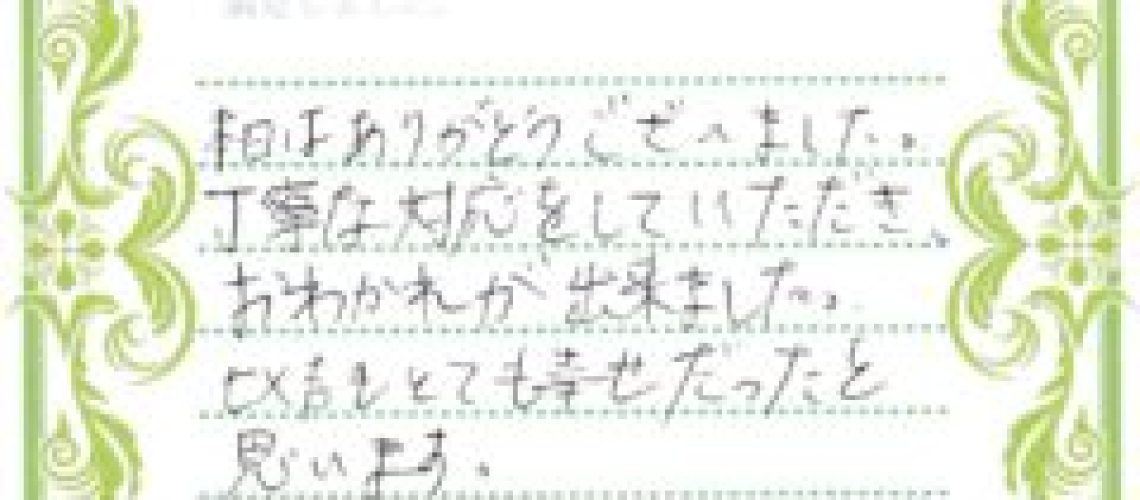 日はありがとうございました。
丁寧な対応をしていただき、
おわかれが出来ました。
もとても幸せだったと
思います。